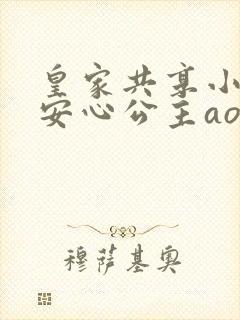 皇家共享小
安心公主ao
穆萨基奥